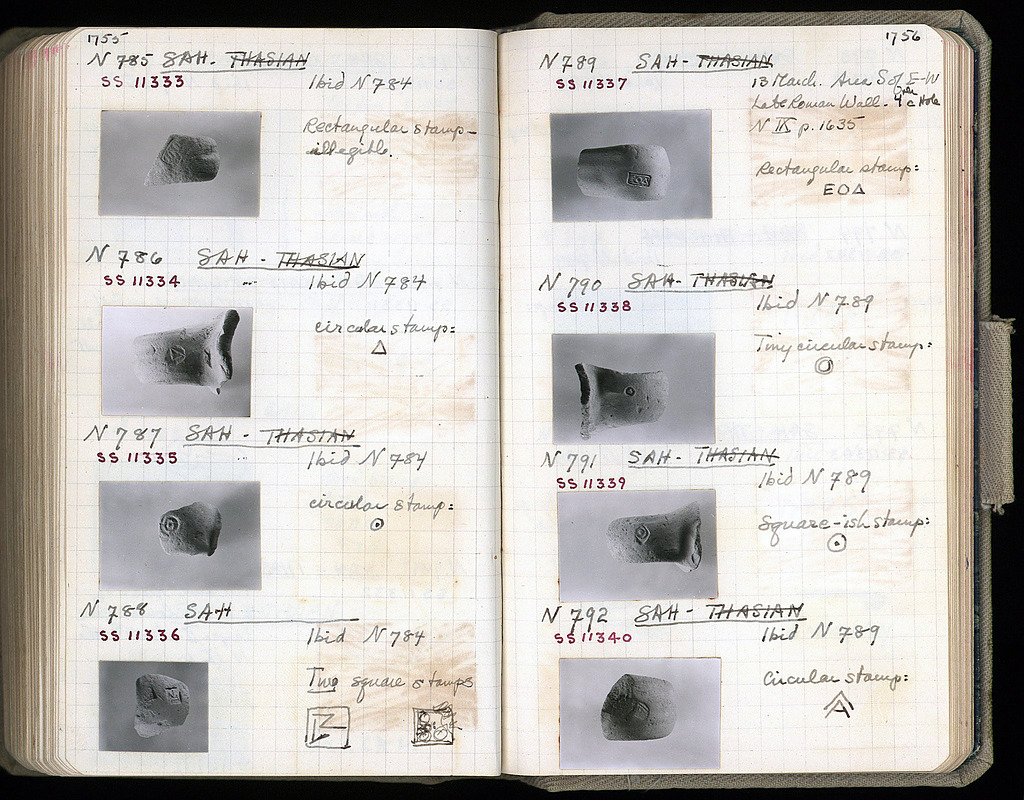 1755
N 785 SAH - THASIAN
SS 11333
Ibid N 784
Rectangular stamp -
illegible.
N 786 SAH - THASIAN
SS 11334
Ibid N 784
circular stamp:
Δ
N 787 SAH - THASIAN
SS 11335
Ibid N 784
circular stamp:
⊙
N 788 SAH
SS 11336
Ibid N 784
Two square stamps
1756
N 789 SAH - THASIAN
SS 11337
13 March. Area S of E-W
Late Roman Wall - 4 c Hole
N IX p. 1635
Rectangular stamp:
ΕΟΔ
N 790 SAH - THASIAN
SS 11338
Ibid N 789
Tiny circular stamp:
◎
N 791 SAH - THASIAN
SS 11339
Ibid N 789
Square-ish stamp:
⊙
N 792 SAH - THASIAN
SS 11340
Ibid N 789
Circular stamp:
A